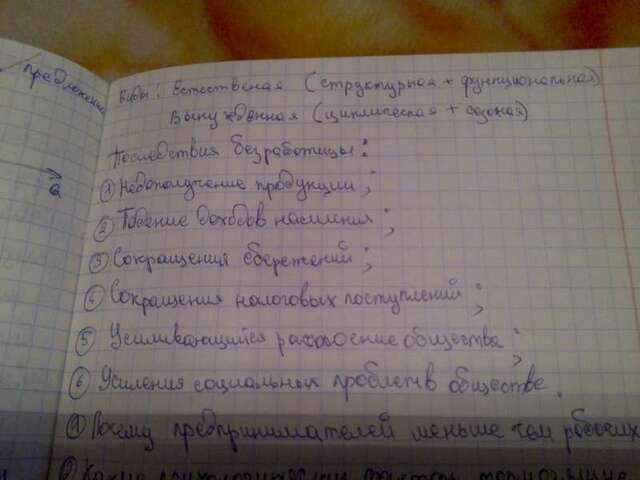 предложение
a
Виды: Естественая (структурная + функциональная)
Вынужденная (циклическая + сезоная)
Последствия безработицы:
① Недополучение продукции;
② Падение доходов населения;
③ Сокращения сбережений;
④ Сокращения налоговых поступлений;
⑤ Усиливающийся общества;
⑥ Усиления социальных проблем в обществе.
① Почему предпринимателей меньше чем рабочих
② Какие психологические факторы